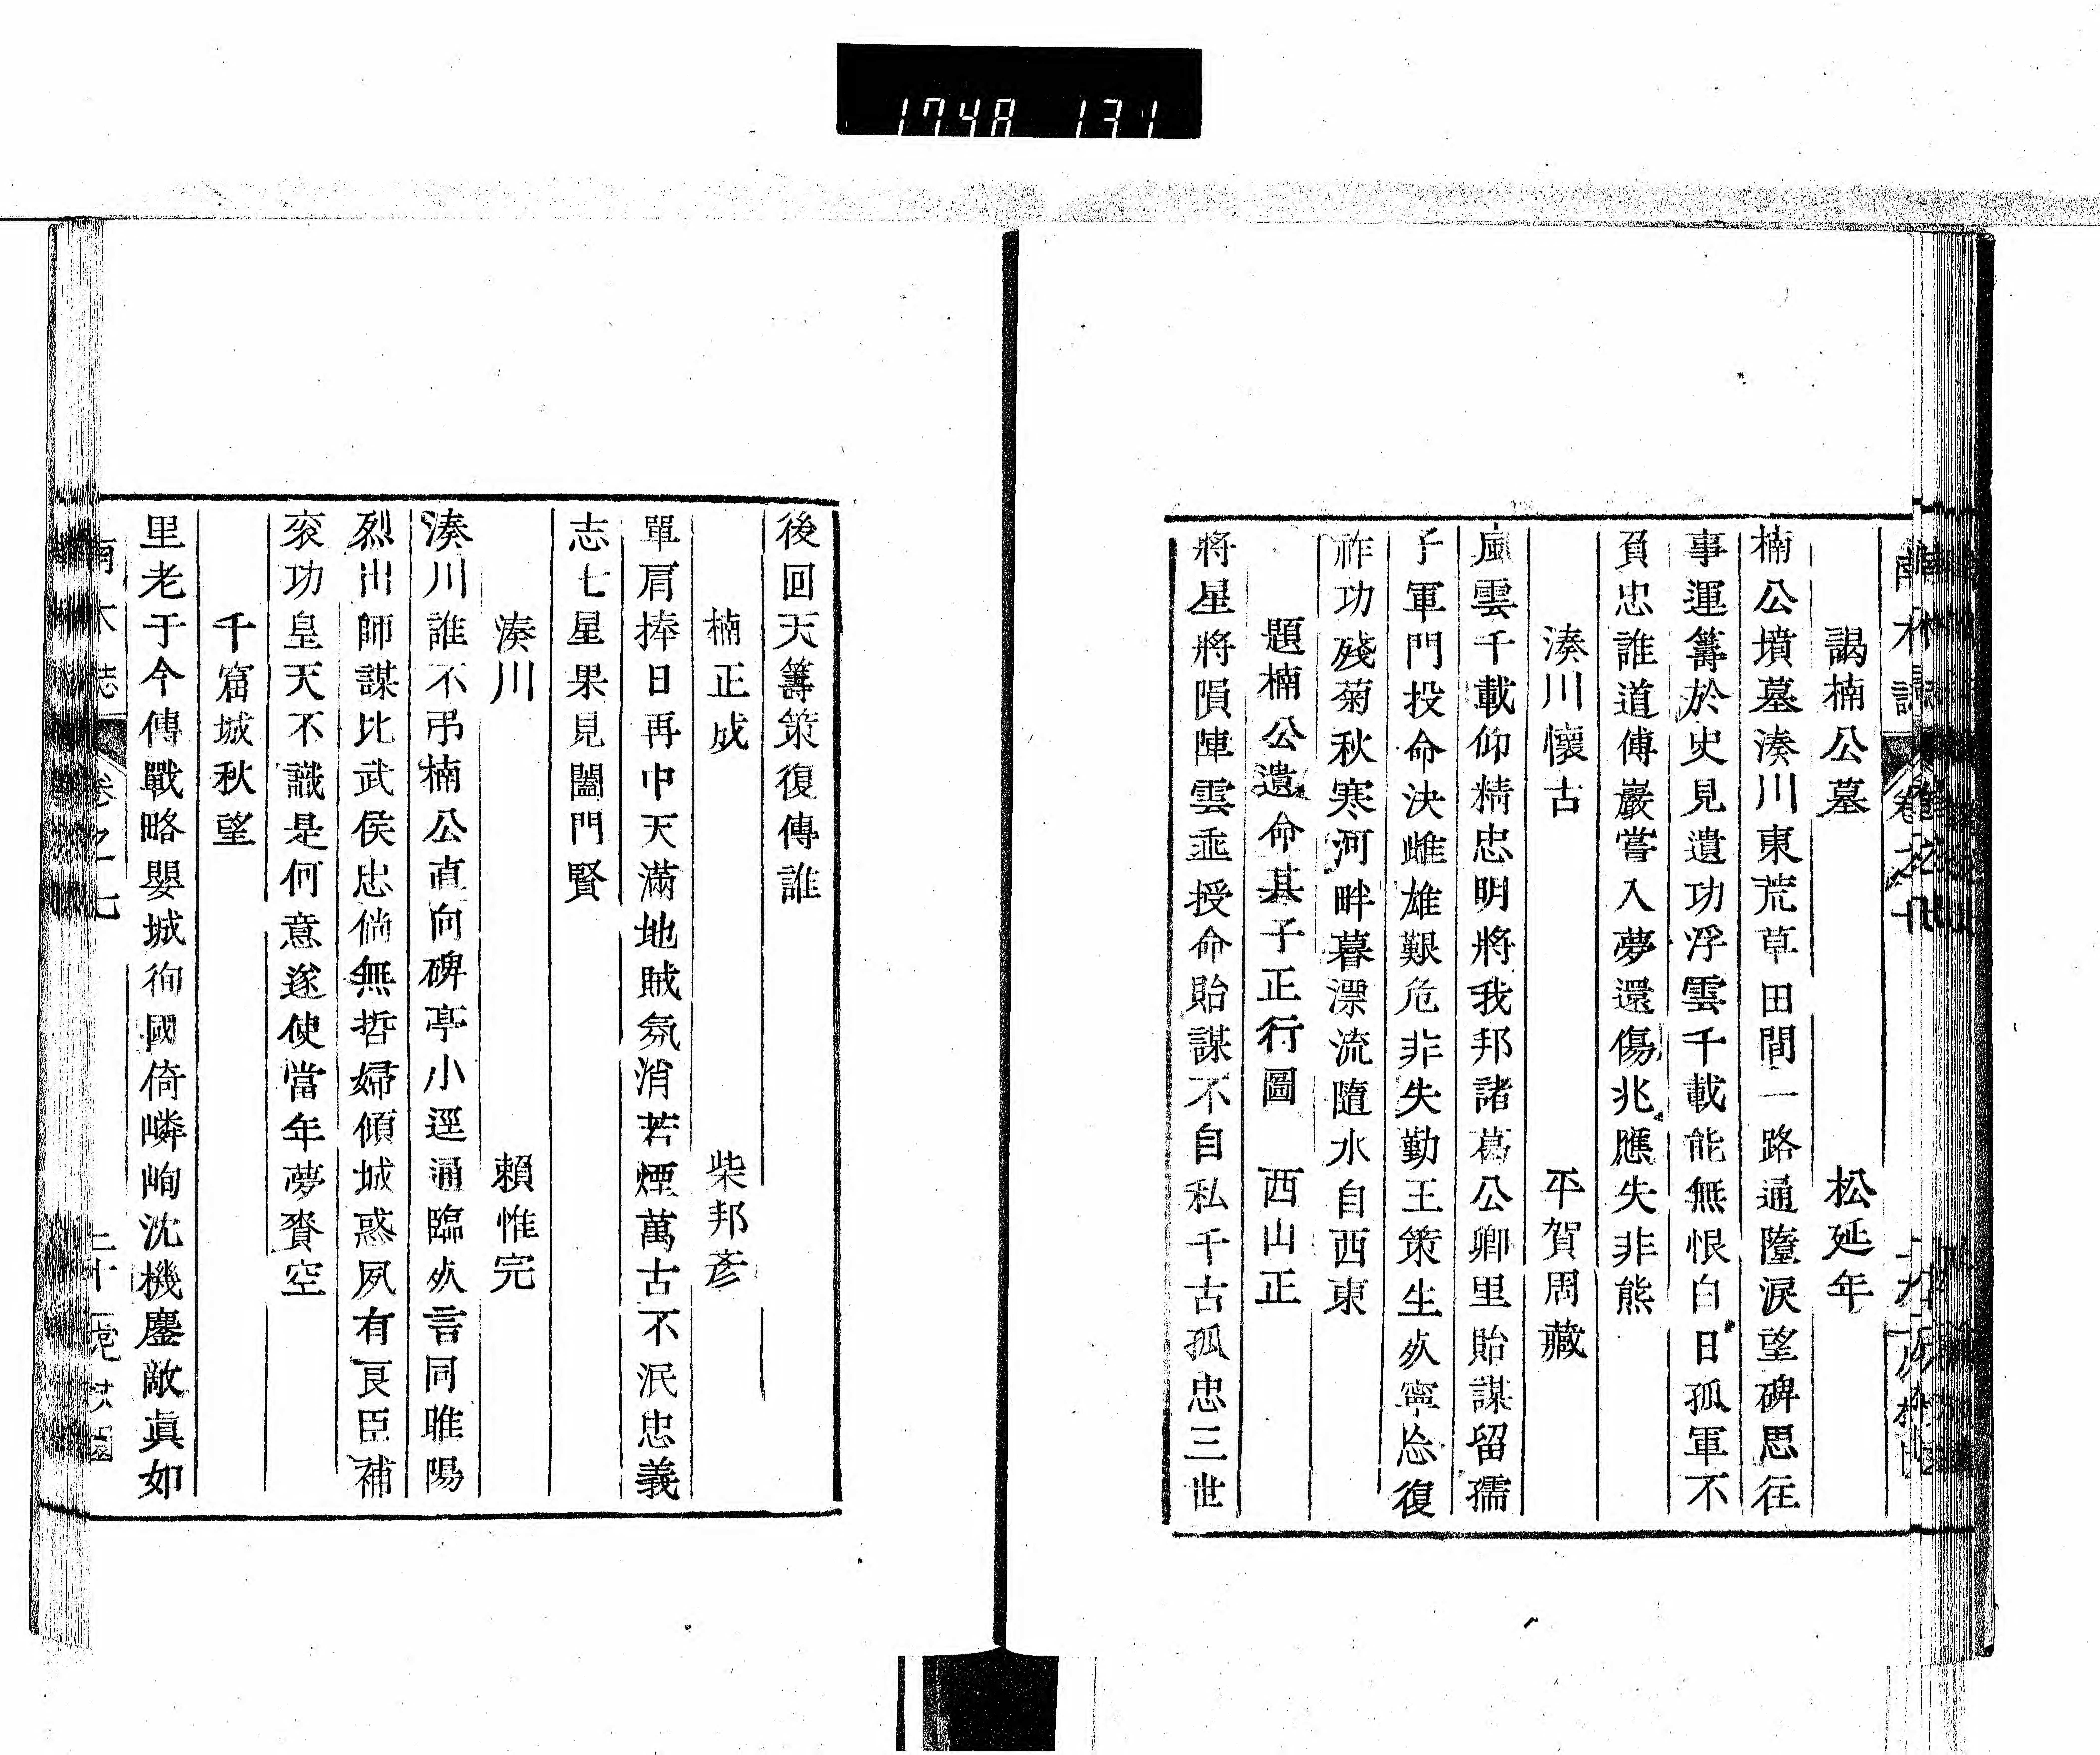 1748 131
謁楠公墓 松延年
楠公墳墓湊川東荒草田間一路通墮淚望碑思往
事運籌於史見遺功浮雲千載能無恨白日孤軍不
負忠誰道傅巖嘗入夢還傷兆應失非熊
湊川懷古 平賀周藏
風雲千載仰精忠明將我邦諸葛公卿里貽謀留孺
子軍門投命決雌雄艱危非失勤王策生死寧忘復
祚功殘菊秋寒河畔暮漂流隨水自西東
題楠公遺命其子正行圖 西山正
將星將隕陣雲垂授命貽謀不自私千古孤忠三世
後回天籌策復傳誰
楠正成 柴邦彥
單肩捧日再中天滿地賊氛消若煙萬古不泯忠義
志七星果見闔門賢
湊川 賴惟完
湊川誰不弔楠公直向碑亭小逕通臨死言同睢陽
烈出師謀比武侯忠倘無哲婦傾城惑夙有良臣補
袞功皇天不識是何意遂使當年夢賚空
千窟城秋望
里老于今傳戰略嬰城徇國倚嶙峋沈機鏖敵真如
南木誌 卷之七